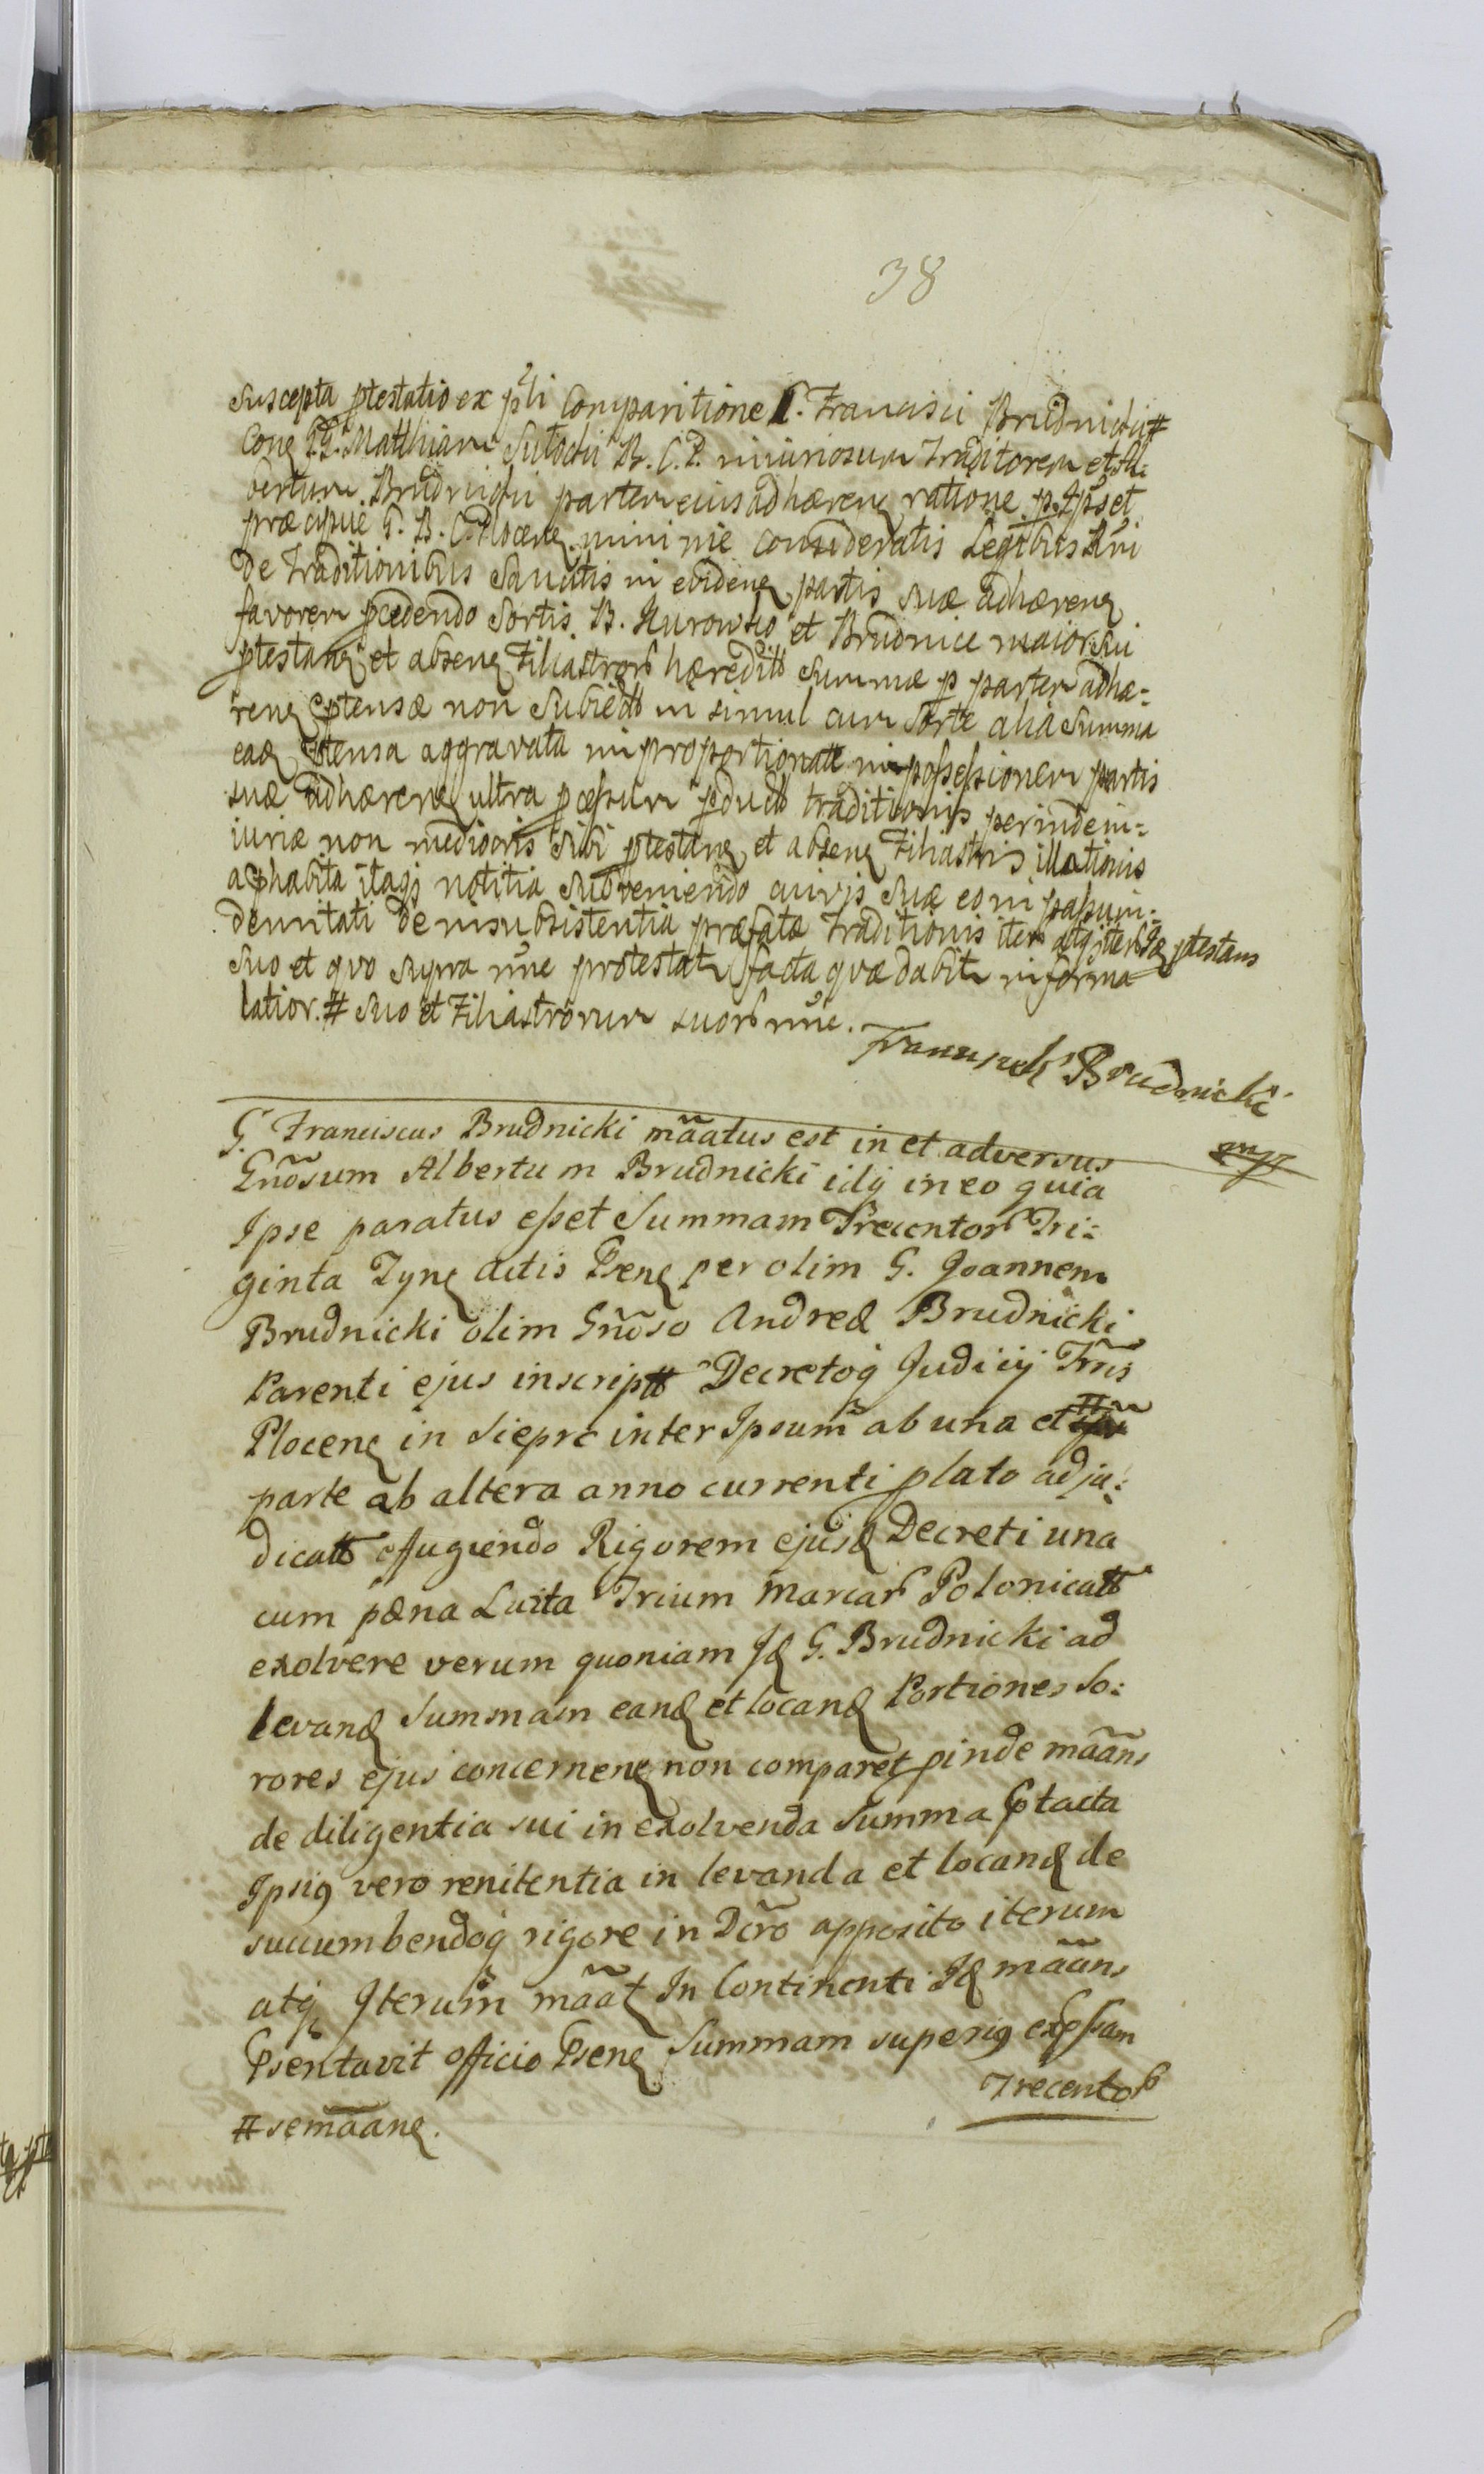 38
Suscepta ptestatio ex pli Comparitione G. Francisci Brudnicki #
Conę GG. Matthiam Sutocki B. C. P. iniuriosum Traditorem et Al=
bertum Brudnicki partem eius adhærenę ratione p. Ipš et
præcipuè G. B. C. Plocenę minime consideratis Legibus Rñi
de Traditionibus Sancitis in evidenę partis suæ adhærenę
favorem pcedendo Sortis B. Hurowsko et Brudnice maior. Sui
ptestanę et absenę Filiastror hæredit Summæ p partem adhæ=
renę ptensæ non Subiect in simul cum Sorte aliâ Summa
ead ptensa aggravata improportionatt in possessionem partis
suæ adhærenę ultra pcessum pduct traditionis perinde in=
iuriæ non mediocris Sibi ptestanę et absenę Filiastris illationis
a phabita itaq notitia Subveniendo curis suæ eo in passu in=
demnitati de insubsistentia præfatæ Traditionis iter atq iter Id ptestans
Suo et quo supra nñe protestat facta quæ dabit in forma
latior. # Suo et Filiastrorum suor nñe.
Franciszek Brudnicki
mp
G. Franciscus Brudnicki mãatus est in et adversus
Gnõsum Albertum Brudnicki idq in eo quia
Ipse paratus esset Summam Trecentor Tri=
ginta Tynę actis Psenę per olim G. Joannem
Brudnicki olim Gnõso Andreæ Brudnicki
Parenti ejus inscriptt Decretoq Judicij Trris
Plocenę in Sieprc inter Ipsum ab una et #
parte ab altera anno currenti plato adju=
dicatt effugiendo Rigorem ejusd Decreti una
cum pæna Luita Trium Marcar Polonicatt
exolvere verum quoniam Id G. Brudnicki ad
levand Summam eand et locand Portiones So=
rores ejus concernenę non comparet pinde mãans
de diligentia sui in exolvenda Summa Ptacta
Ipsiq vero renitentia in levanda et locand de
succumbendoq rigore in Dcro apposito iterum
atq Iterum mãat In Continenti Id mãans
Psentavit officio Psenę Summam superiq expssam
Trecentor
# se mãanę.